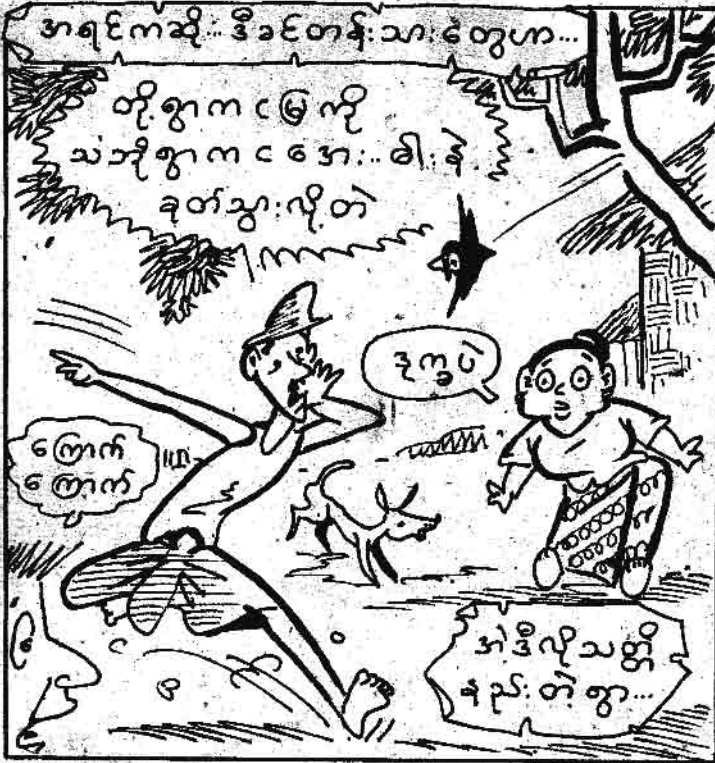 အရင်ကဆို... ဒီခင်တန်းသားတွေဟာ...
တို့ရွာက ငမြွေကို
သံဘိုရွာက ငအေး... ဓါးနဲ့
ခုတ်သွားလို့တဲ့
ဒုက္ခပဲ
ကြောက်
ကြောက်
အဲဒီလိုသတ္တိ
နည်းတဲ့ရွာ...